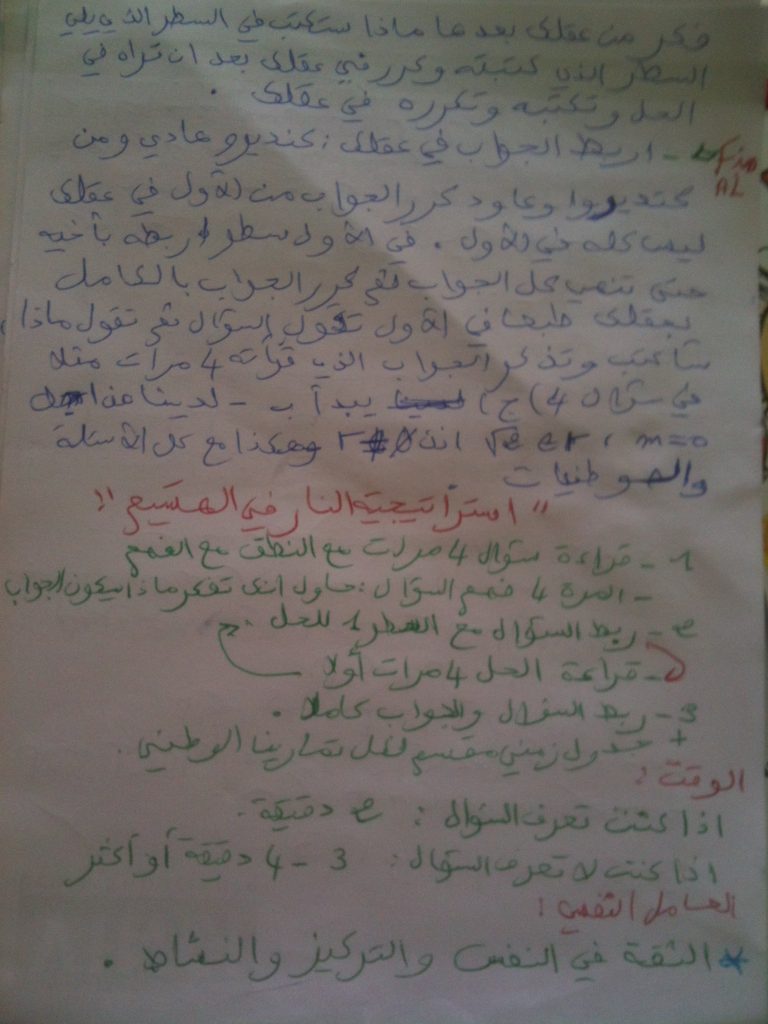 فكر من عقلك بعدها ماذا ستكتب في السطر الذي يلي
السطر الذي كتبته وكرر في عقلك بعد ان تراه في
الحل وتكتبه وتكرره في عقلك .
- اربط الجواب في عقلك : كنديرو عادي ومن
Fin
AL
كنديروا وعاود كرر الجواب من الأول في عقلك
ليس كله في الأول . في الأول سطر 1 ربطه بأخيه
حتى تنهي كل الجواب ثم كرر الجواب بالكامل
بعقلك طبعا في الأول تقول السؤال ثم تقول ماذا
سأكتب وتذكر الجواب الذي قرأته 4 مرات مثلا
في سؤال 4) ج) يبدأ ب - لدينا من اجل
m=0 ، وهكذا مع كل الأسئلة
والوطنيات
" استراتيجية النار في الهشيم "
1 - قراءة سؤال 4 مرات مع النطق مع الفهم
- المرة 4 فهم السؤال : حاول انك تفكر ماذا سيكون الجواب
2 - ربط السؤال مع السطر 1 للحل
- قراءة الحل 4 مرات أولا
3 - ربط السؤال والجواب كاملا .
+ جدول زمني مقسم لكل تمارينا الوطني .
الوقت :
اذا كنت تعرف السؤال : 2 دقيقة .
اذا كنت لا تعرف السؤال : 3 - 4 دقيقة أو أكثر
العامل النفسي :
* الثقة في النفس والتركيز والنشاط .